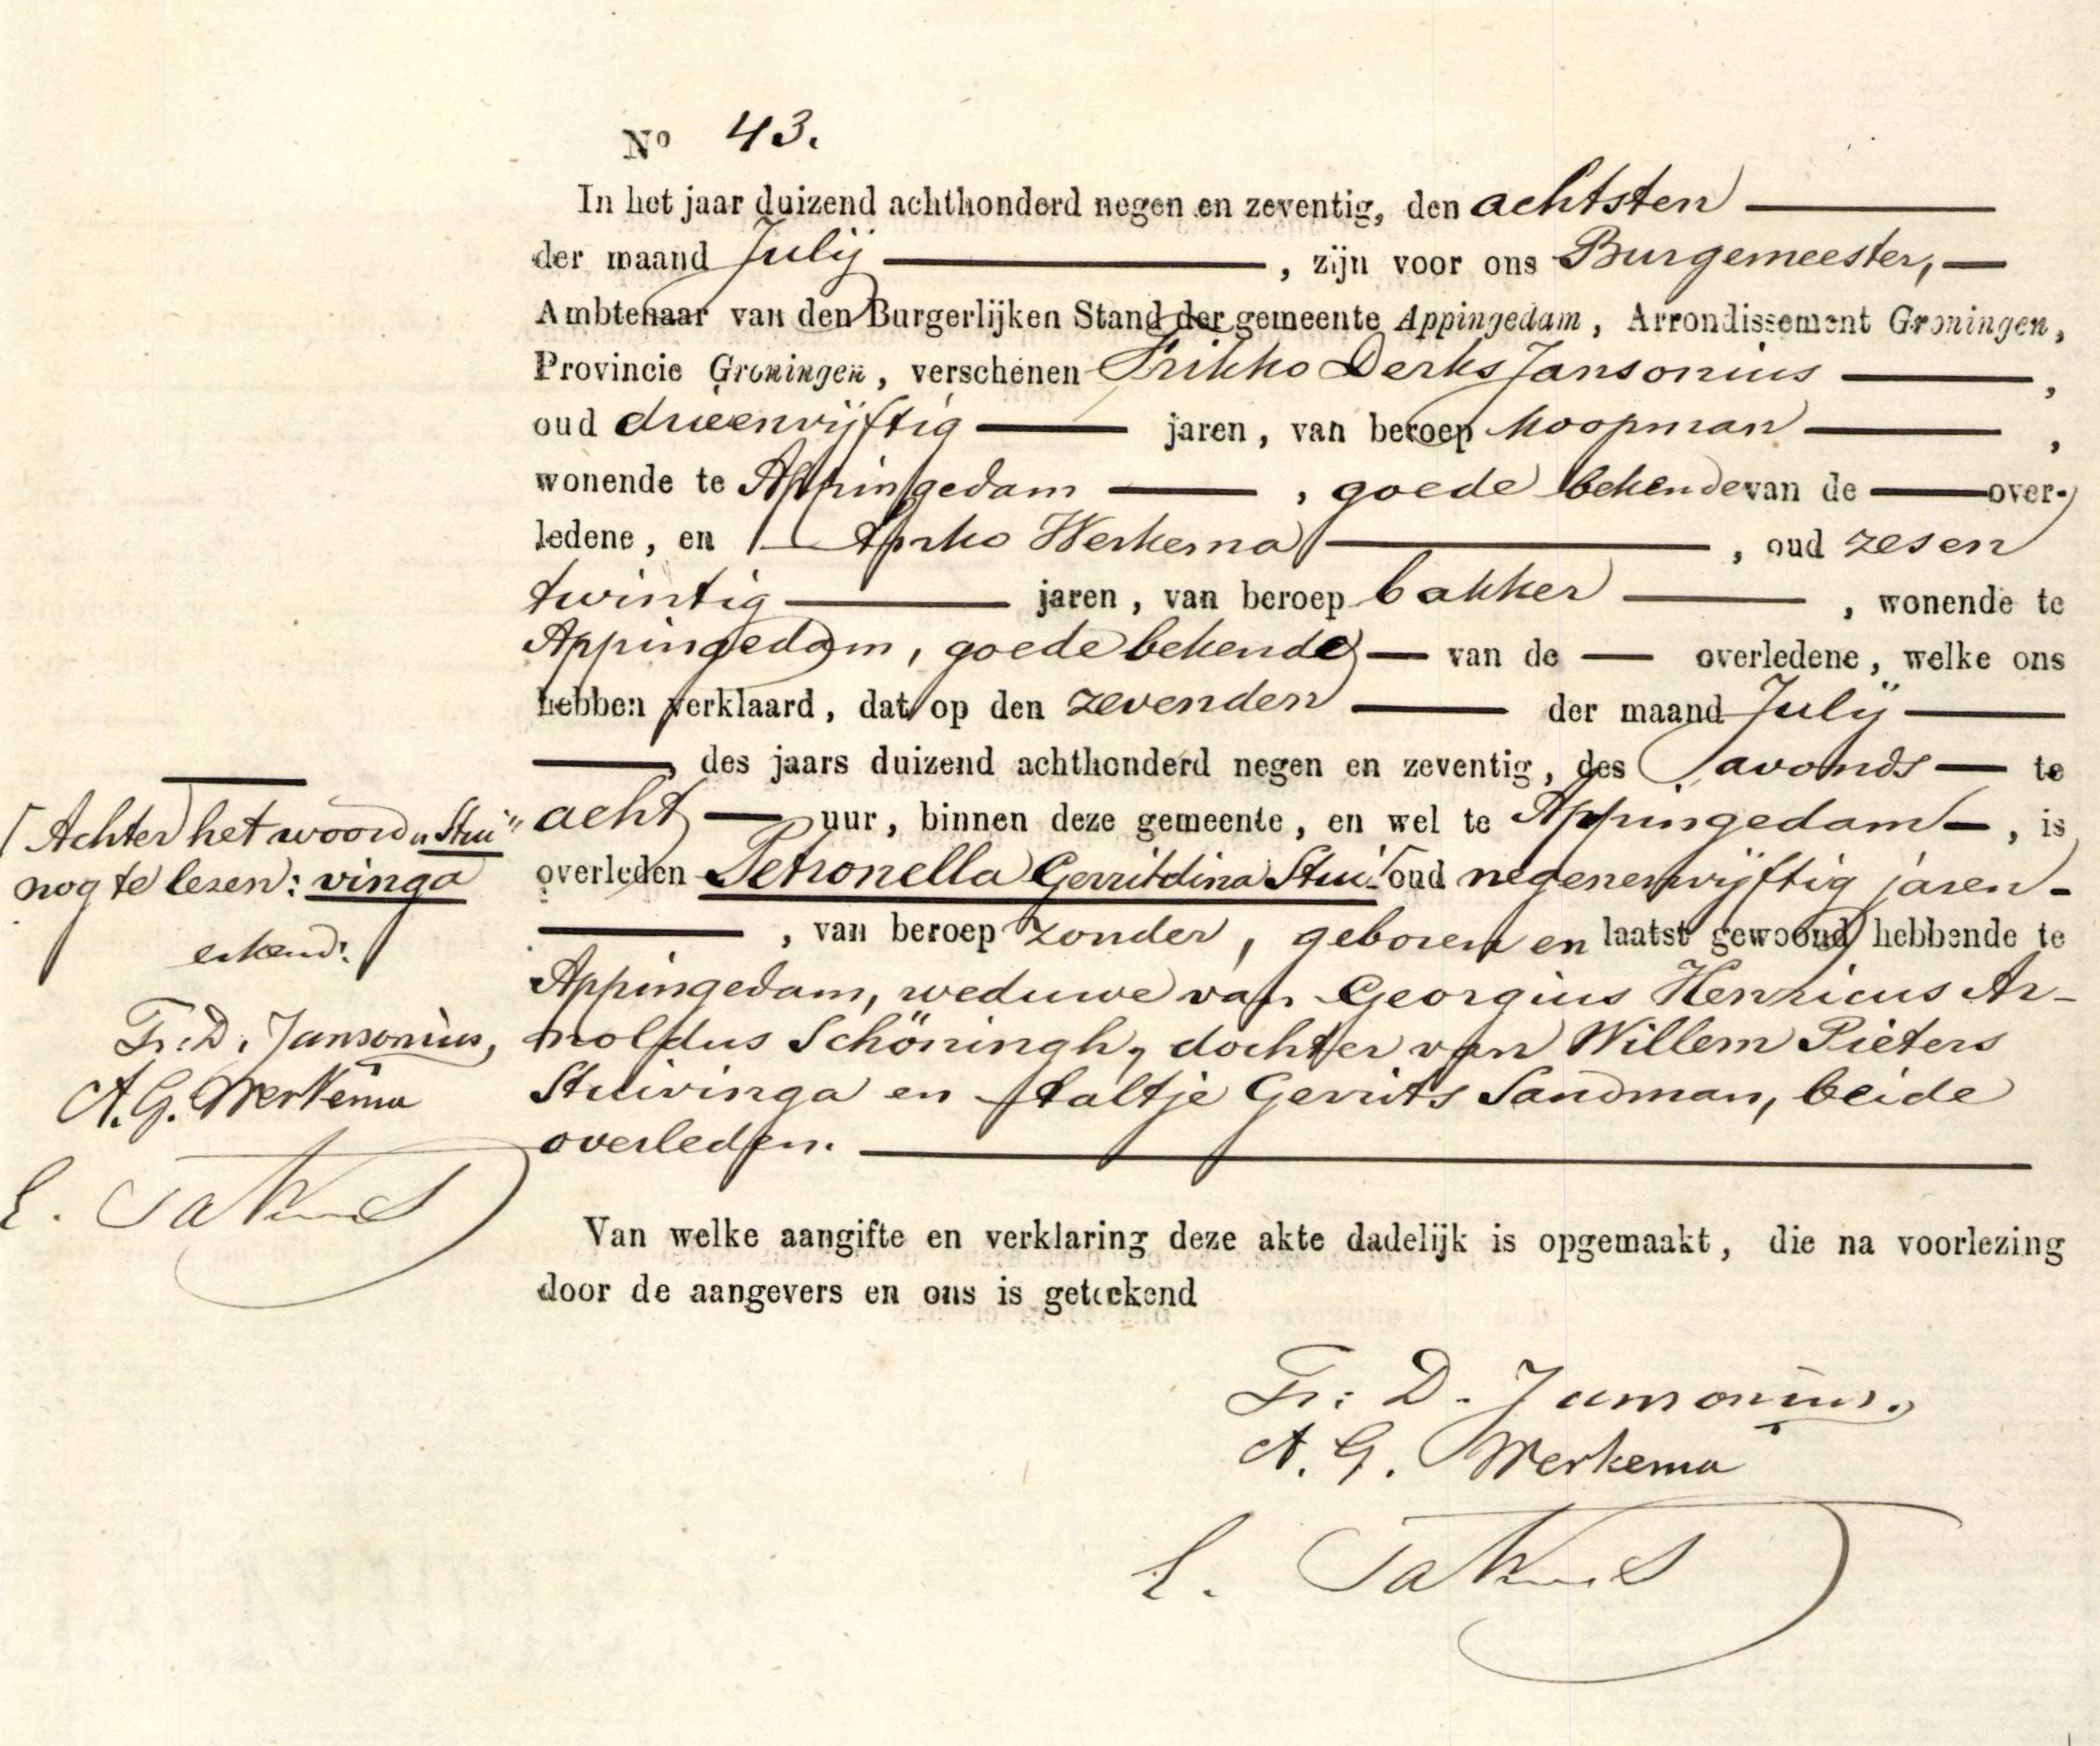 No 43.
In het jaar duizend achthonderd negen en zeventig, den achtsten
der maand Julij, zijn voor ons Burgemeester,
Ambtenaar van den Burgerlijken Stand der gemeente Appingedam, Arrondissement Groningen,
Provincie Groningen, verschenen Frikko Derks Jansonius,
oud drieenvijftig jaren, van beroep koopman,
wonende te Appingedam, goede bekende van de over-
ledene, en Apko Werkema, oud zesen
twintig jaren, van beroep bakker, wonende te
Appingedam, goede bekende van de overledene, welke ons
hebben verklaard, dat op den zevenden der maand Julij
des jaars duizend achthonderd negen en zeventig, des avonds te
acht uur, binnen deze gemeente, en wel te Appingedam, is
overleden Petronella Gerritdina Stui- oud negenenvijftig jaren
, van beroep zonder, geboren en laatst gewoond hebbende te
Appingedam, weduwe van Georgius Henricus Ar-
noldus Schöningh, dochter van Willem Pieters
Stuivinga en Aaltje Gerrits Sandman, beide
overleden.
Van welke aangifte en verklaring deze akte dadelijk is opgemaakt, die na voorlezing
door de aangevers en ons is geteekend
Fr: D. Jansonius.
A. G. Werkema
Achter het woord "Stui"
nog te lezen: vinga
erkend:
Fr: D. Jansonius,
A. G. Werkema